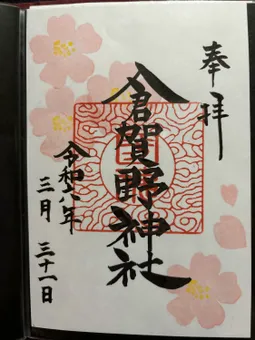 奉拝
倉賀野神社
令和八年
三月 三十一日